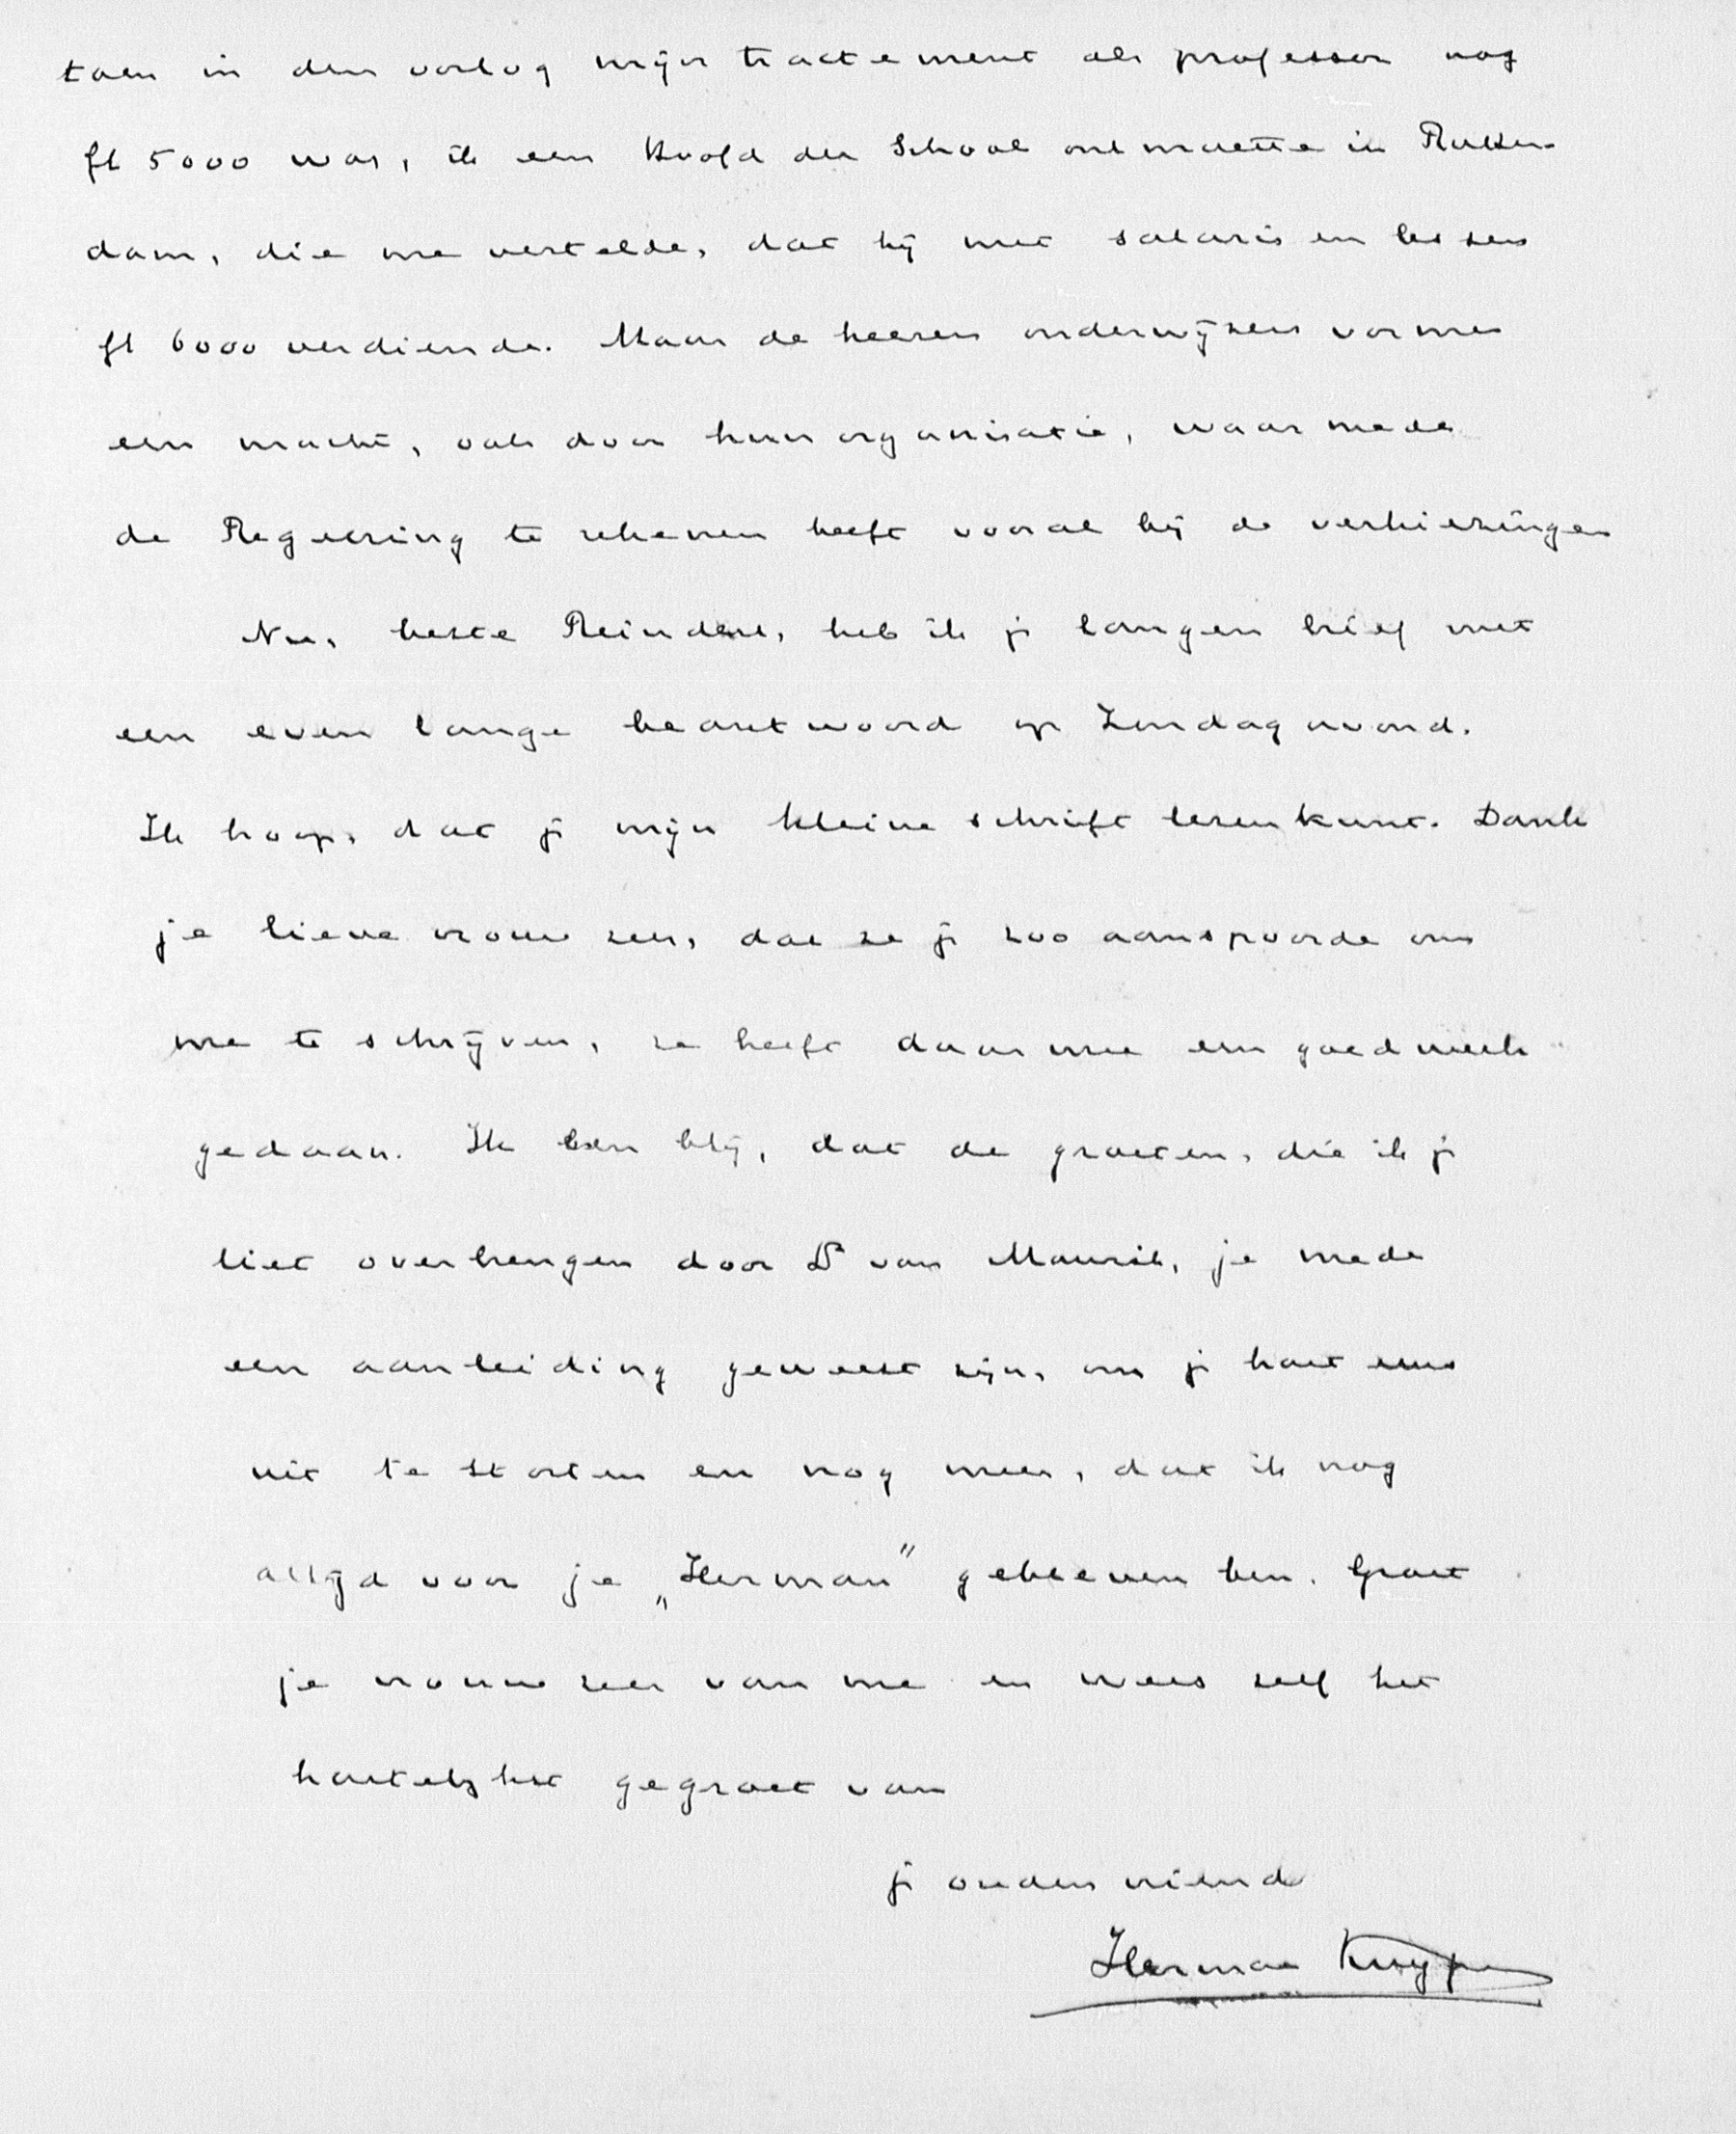 toen in den oorlog mijn tractement als professor nog
fl 5000 was, ik een Hoofd der School ontmoette in Rotter-
dam, die me vertelde, dat hij met salaris en lessen
fl 6000 verdiende. Maar de heeren onderwijzers vormen
een macht, ook door hun organisatie, waarmede
de Regeering te rekenen heeft vooral bij de verkiezingen
Nu, beste Reindert, heb ik je langen brief met
een even lange beantwoord op Zondagavond.
Ik hoop, dat je mijn kleine schrift lezen kunt. Dank
je lieve vrouw zeer, dat ze je zoo aanspoorde om
me te schrijven, ze heeft daarmee een goed werk
gedaan. Ik ben blij, dat de groeten, die ik je
liet overbrengen door Ds van je mede
een aanleiding geweest zijn, om je hart eens
uit te storten en nog meer, dat ik nog
altijd voor je „Herman" gebleven ben. Groet
je vrouw zeer van me en wees zelf het
hartelijkst gegroet van
je ouden vriend
Herman Kuyper